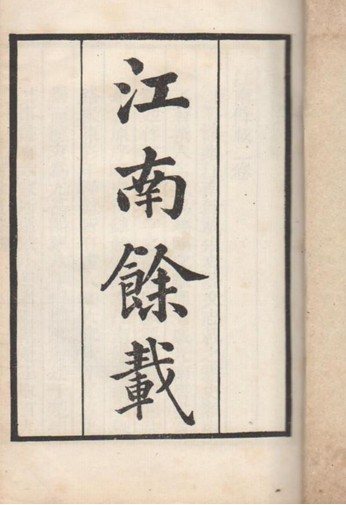 江南餘載